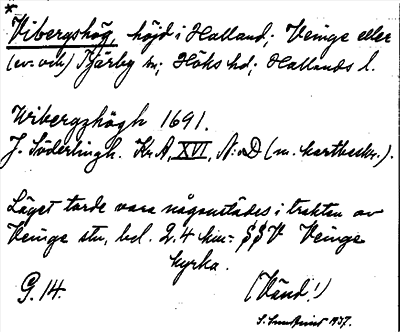 *
Vibergshög, höjd i Halland; Veinge eller
(ev. och) Tjärby sn; Höks hd; Hallands l.
Wibergzhögh 1691.
J. Söderlingh. Kr.A, XVI, N:o D (m. kartbeskr.).
Läget torde vara någonstädes i trakten av
Veinge stn, bel. 2.4 km. SSV Veinge
kyrka.
G. 14. (Vänd!)
S. 1937.